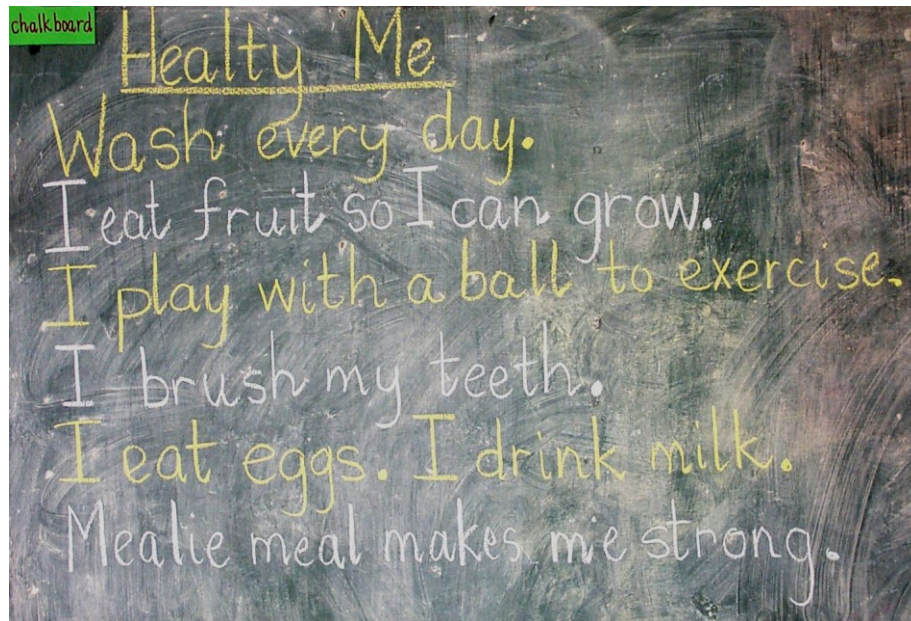 chalkboard
Healty Me
Wash every day.
I eat fruit so I can grow.
I play with a ball to exercise.
I brush my teeth.
I eat eggs. I drink milk.
Mealie meal makes me strong.